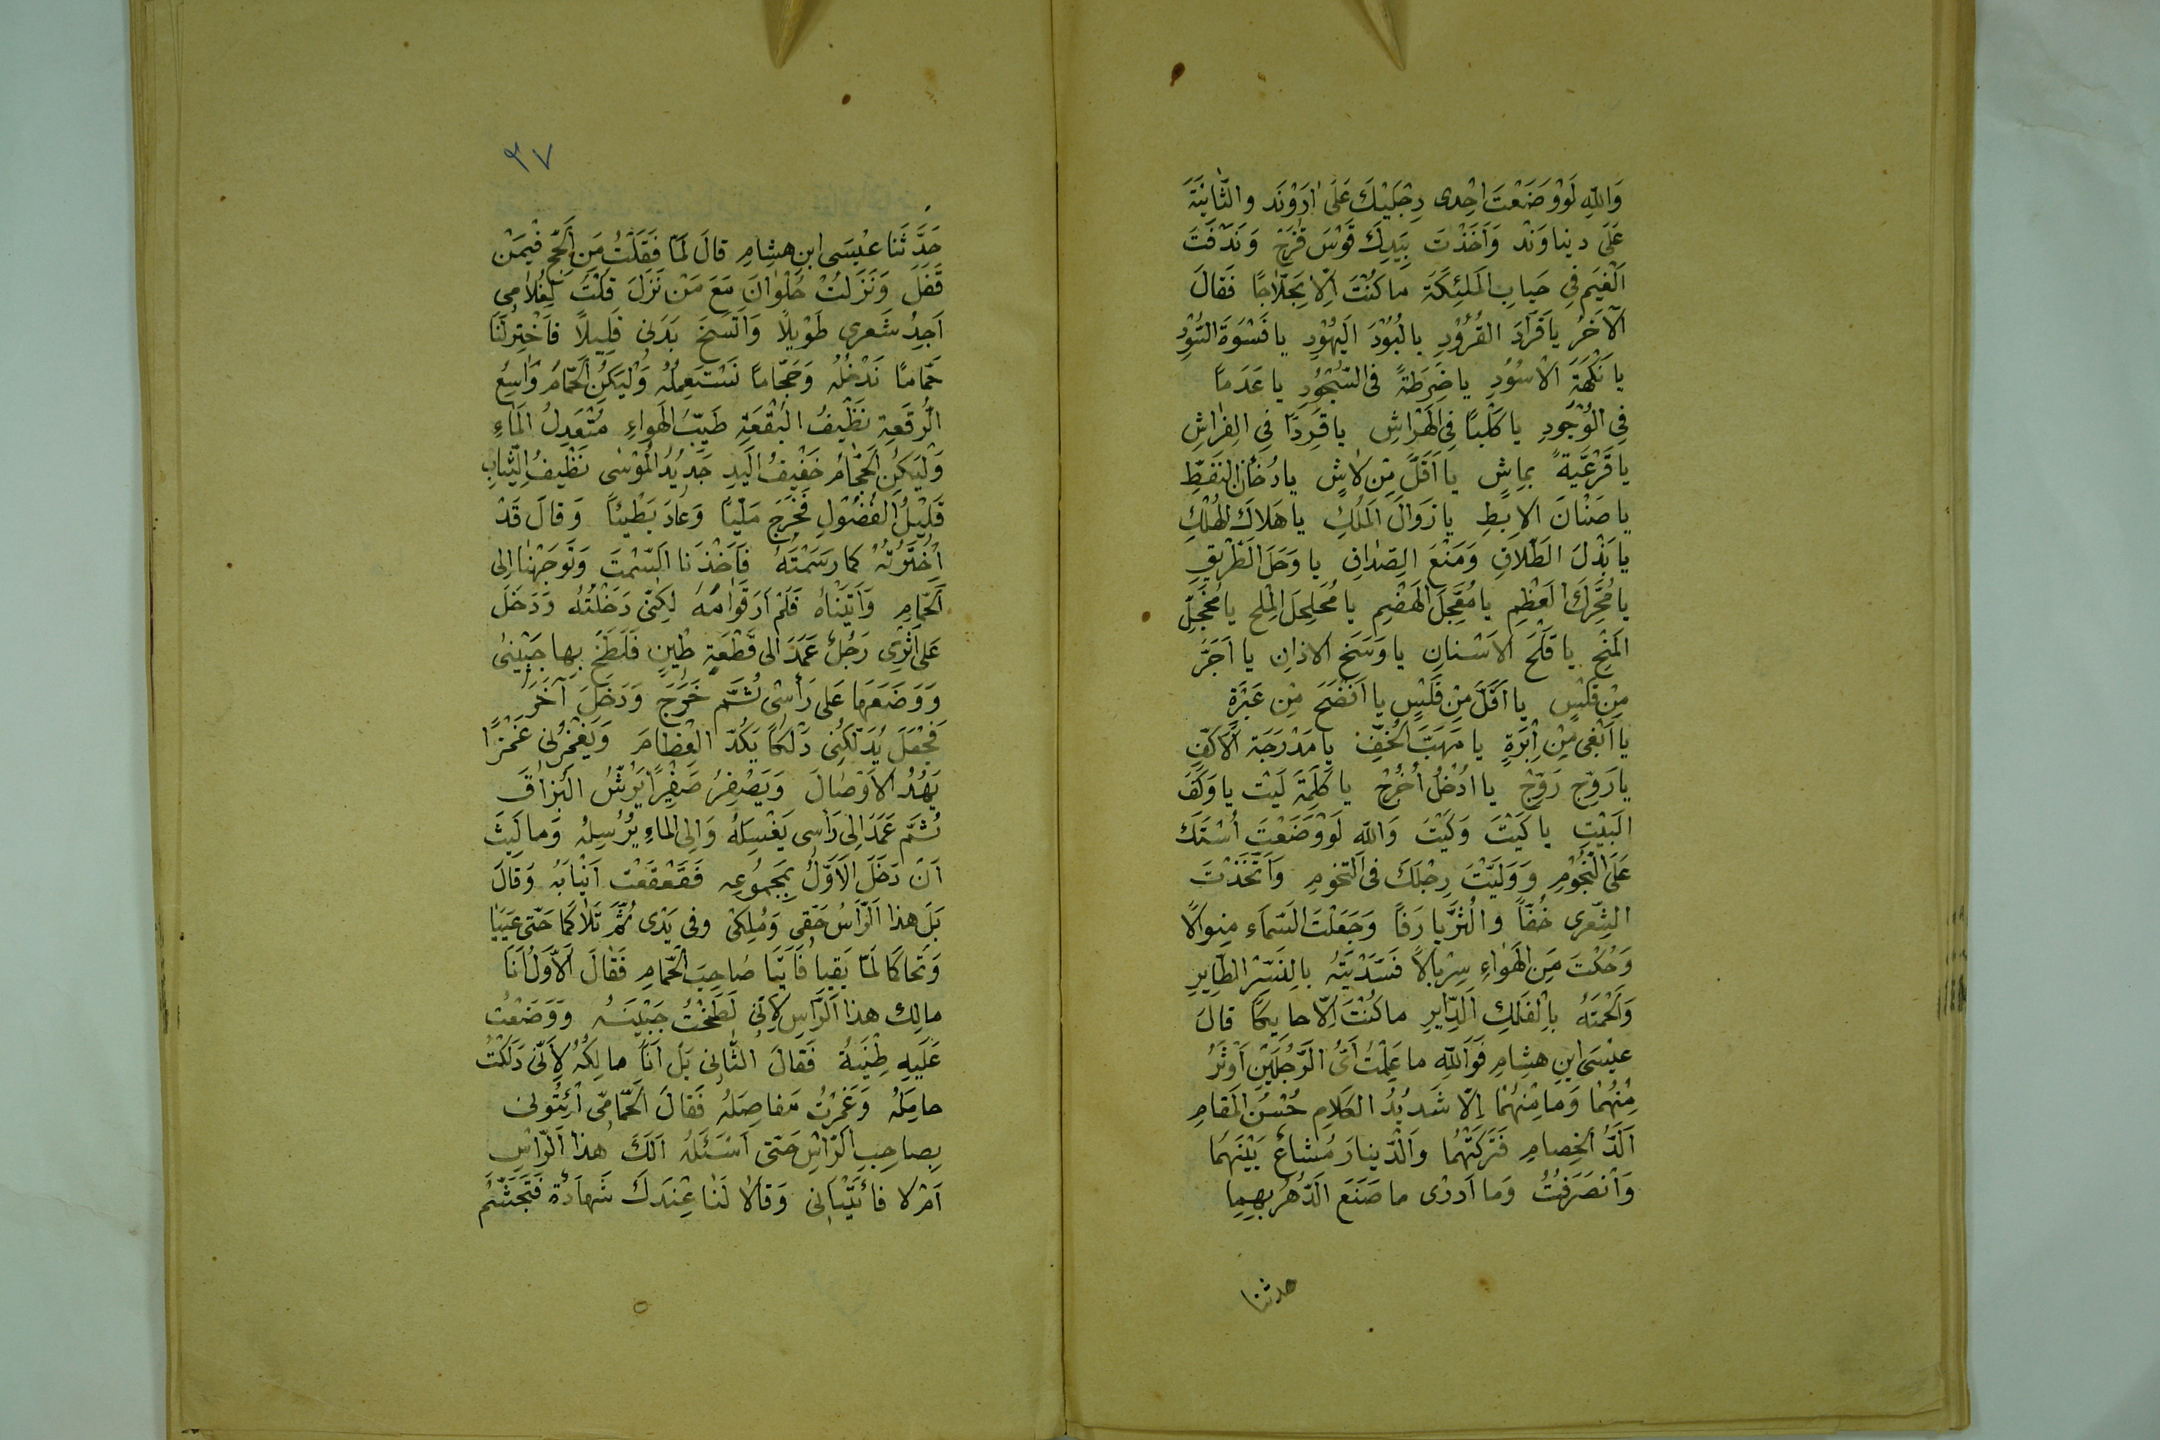 وَاللهِ لَوْ وَضَعْتَ اِحْدى رِجْلَيْكَ عَلى اَرْوَنْدَ والثّانِيَةَ
عَلى دنياوَنْد وَاَخَذْتَ بِيَدِكَ قَوْسَ قُزَحْ وَنَدَفْتَ
الْغَيْمَ فِي جِبابِ الْمَلئِكَةِ ما كُنْتَ اِلّا حَلّاجًا فَقالَ
الآخَرُ ياقَرّادَ القُرُودِ يالُبُوْدَ الْيَهُوْدِ يا فَسْوَةَ السُّوْدِ
يا نَكْهَةَ الاُسُوْدِ يا ضَرْطَةً فى السُّجُوْدِ يا عَدَمًا
فِي الْوُجُوْدِ يا كَلْبًا فِي الْهَراشِ يا قَرِدًا فِي الفِراشِ
يا قَرْعِيَّةً بِماشٍ يا اَقَلَّ مِن لاشٍ يا دُخانَ النَّفْطِ
يا صُنْانَ الاِبطِ يا زَوالَ الْمُلْكِ يا هَلاكَ الْهُلْكِ
يا بَذْلَ الطَّلاقِ وَمَنْعَ الصَّداقِ يا وَحَلَ الطَّرْيْقِ
يا مُحَرِّكَ الْعَظْمِ يا مُعَجِّلَ الْهَضْمِ يا مُحَلْحِلَ الْمِلْحِ يا مُخَجِّلَ
الْمَنْحِ يا قَلَحَ الاَسْنانِ يا وَسَخَ الاذانِ يا اَجَرَّ
مِنْ قَلْسٍ يا اَقَلَّ مِنْ فَلْسٍ يا اَفْضَحَ مِنْ عَبْرَةٍ
يا اَبْغى مِنْ اِبْرَةٍ يا مَهَبَّ الْخُفِّ يا مَدْرَجَةَ الْاَكُفِّ
يا رَوِّج رَوِّجْ يا اُدْخُلْ اُخْرُجْ يا كَلِمَةَ لَيْت يا وَكَفَ
الْبَيْتِ يا كَيْتَ وَكَيْتَ وَاللهِ لَوْ وَضَعْتَ اُسْتَكَ
عَلَى النُّجُوْمِ وَوَلَّيْتَ رِجْلَكَ فى التَّخومِ وَاتَّخَذْتَ
الشِّعْرى خُفًّا والْثُرَيّا رَفًا وَجَعَلْتَ السَّماء مِنوالًا
وَحُكْتَ مَِنَ الْهَواءِ سِرْبالاً فَسَدَّيْتَهُ بِالنَّسْرِ الطّايِرِ
وَالْحَمْتَهُ بِالْفَلَكِ الدّايرِ ما كُنْتَ اِلّا حايِكًا قالَ
عيْسَى ابنِ هشامٍ فَوَاللهِ ما عَلِمْتُ اَىُّ الرَّجُلَيْنِ اُوْثِرُ
مِنْهُما وَما مِنْهُما اِلّا شَديْدُ الكَلامِ حُسْنُ الْمَقامِ
اَلَدُّ الْخِصامِ فَتَرَكْتُهُما والدّينارَ مُشاعٌ بَيْنَهُما
وَانْصَرَفْتُ وَما اَدرْى ما صَنَعَ الدَّهْرُ بِهِما
حدثنا
٣٧
حَدَّثَنا عيْسَى ابنِ هشامٍ قالَ لَمّا فَقَلْتُ مِنَ الْحَجِّ فيْمَنْ
قَفَلَ وَنَزَلْتُ حُلْوانَ مَعَ مَنْ نَزَلَ قُلْتُ لِغُلامِى
اَجِدُ شَعرى طَوْيلًا وَاتَّسَخَ بَدَنى قَلِيلًا فَاخْتِرْلَنا
حَمّامًا نَدْخُلُهُ وَحَجّامًا نَسْتَعمِلُهُ وَلْيَكُنِ الْحَمّامُ وَاسِعَ
الرُّقْعَةِ نَظْيْفَُ الْبُقْعَةِ طَيِّبُ الْهَواءِ مُعْتَدِلُ الْماءِ
وَلْيَكُنِ الْحَجّامُ خَفيْفُ الْيَدِ حَديْدُ الْمُوْسى نَظْيْفُ الثِّيابِ
قَلِيْلُ الْفُضُوْلِ فَخَرَجَ مَلِيًّا وَعادَ بَطْيئًا وَقالَ قَدْ
اِخْتَرْتُهُ كَما رَسَمْتَهُ فَاَخَذْنا السَّمْتَ وَتَوَجَّهْنا اِلى
الْحَمّامِ وَاَتَيْناهُ فَلَمْ اَرَ قَوامَهُ لكِنّى دَخَلْتُهُ وَدَخَلَ
عَلى اَثَرِى رَجُلٌ عَمَدَ الى قِطْعَةِ طْينٍ فَلَطَخَ بِها جَبْيْنى
وَوَضَعَها عَلى رَأسْى ثُمَّ خَرَجَ وَدَخَلَ آخَرُ
فَجْعَلَ يُدَلِّكُنى دَلْكًا يَكُدُّ العِظامَ وَيَغْمِزُنى غَمْزًا
يَهُدُّ الاَوْصالَ وَيَصْفِرُ صَفْيرًا يَرُشُّ البُزاقَ
ثُمَّ عَمَدَ اِلى رَاسى يَغْسِلُهُ وَالى الماءِ يُرْسِلُهُ وَما لَبِثَ
اَنْ دَخَلَ الاَوَّلُ بِمَجْموُعِهِ فَقَعْقَعَتْ اَنْيابَهُ وَقالَ
بَلْ هذا الرَّأسُ حَقّى وَمُلِكىْ وفى يَدْى ثُمَّ تَلاكَما حَتّى عَيِيَا
وَتَحاكَما لَمّا بَقِيا فَاَتَيا صاحِبَ الْحَمّامِ فَقالَ الْاَوَّلُ اَنَا
مالِك هذا الرَّاْسِ لِاَنّى لَطَخْتُ جَبْيْنَهُ وَوَضَعْتُ
عَلَيهِ طْيْنَهُ فَقالَ الثّانى بَلْ اَنَا مالِكُهُ لِاَنّى دَلَكْتُ
حامِلَهُ وَغَمَزْتُ مَفاصِلَهُ فَقالَ الْحَمّامىّ ائْتُونى
بِصاحِبِ الرَّاسِ حَتّى اَسْئَلَهُ اَلَكَ هذا الرَّاسُ
اَمْ لا فَاَتَيْانى وَقالا لَنا عِنْدَكَ شَهادَةٌ فَتَجَشَّمْ